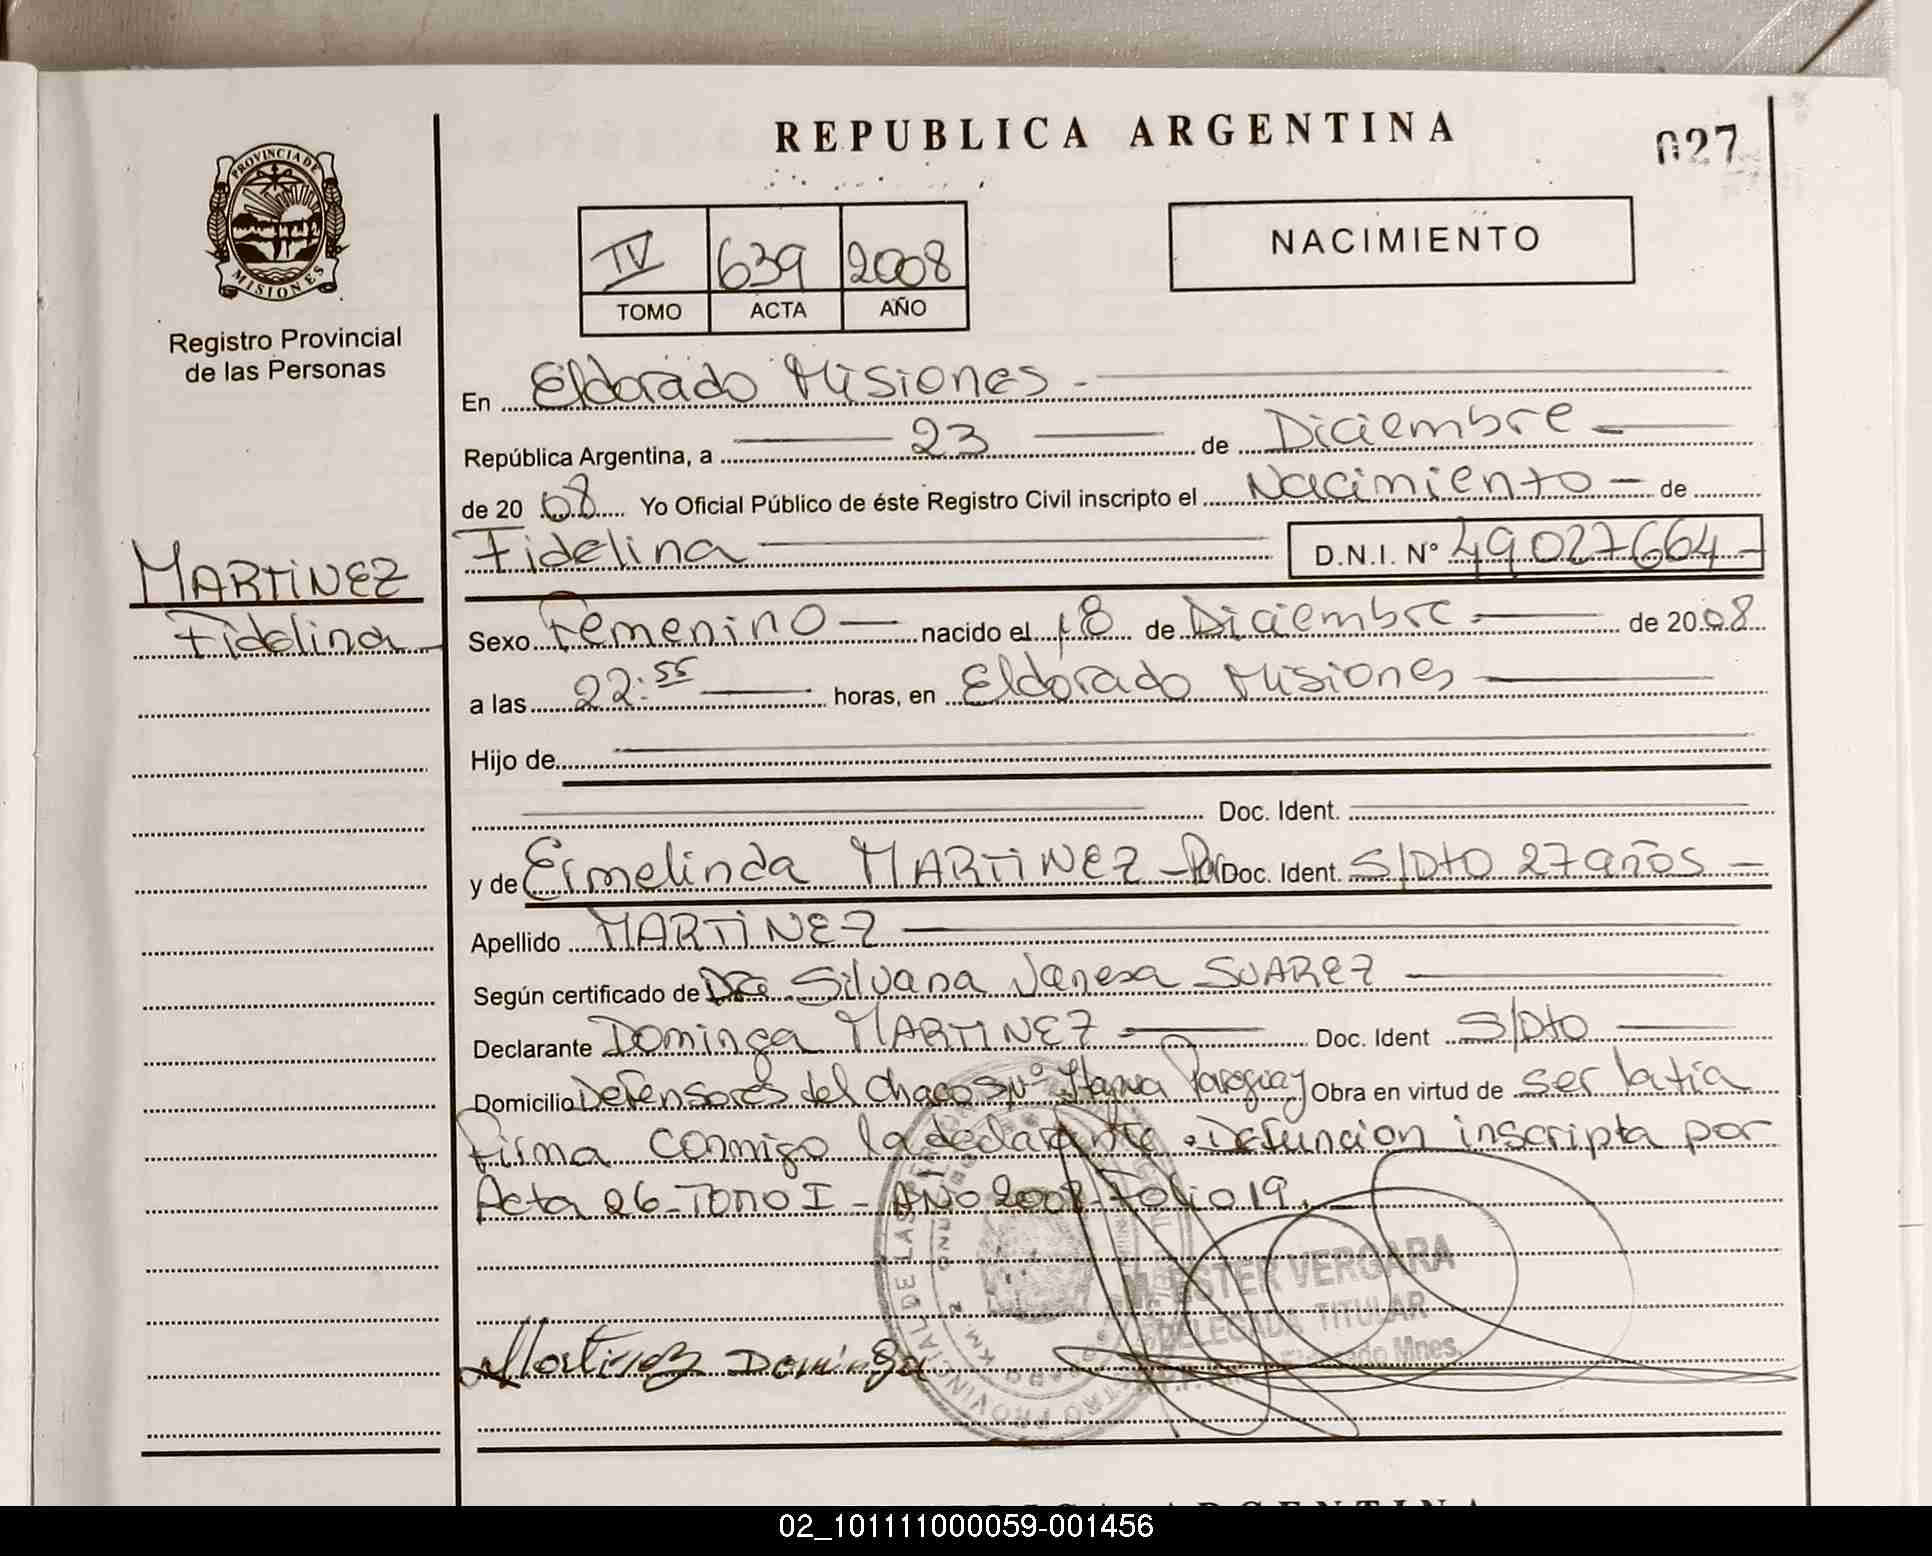 REPUBLICA ARGENTINA
027
PROVINCIA DE
MISIONES
Registro Provincial
de las Personas
IV 639 2008
TOMO ACTA AÑO
NACIMIENTO
En Eldorado Misiones -
República Argentina, a 23 de Diciembre
de 2008 Yo Oficial Público de éste Registro Civil inscripto el Nacimiento - de
Fidelina D.N.I. N° 49027664-
MARTINEZ
Fidelina
Sexo Femenino nacido el 18 de Diciembre de 2008
a las 22:55 horas, en Eldorado Misiones
Hijo de
Doc. Ident.
y de Ermelinda MARTINEZ - Par Doc. Ident. S/Dto 27 años
Apellido MARTINEZ
Según certificado de Dra Silvana Vanesa SUAREZ
Declarante Dominga MARTINEZ Doc. Ident S/Dto
Domicilio Defensores del Chaco S/N° Itagua Paraguay Obra en virtud de ser la tía
firma conmigo la declarante. Defuncion inscripta por
Acta 26-Tomo I - AÑO 2008-Folio 19.
M. ESTER VERGARA
DELEGADA TITULAR
Eldorado Mnes.
Martinez Dominga
02_101111000059-001456